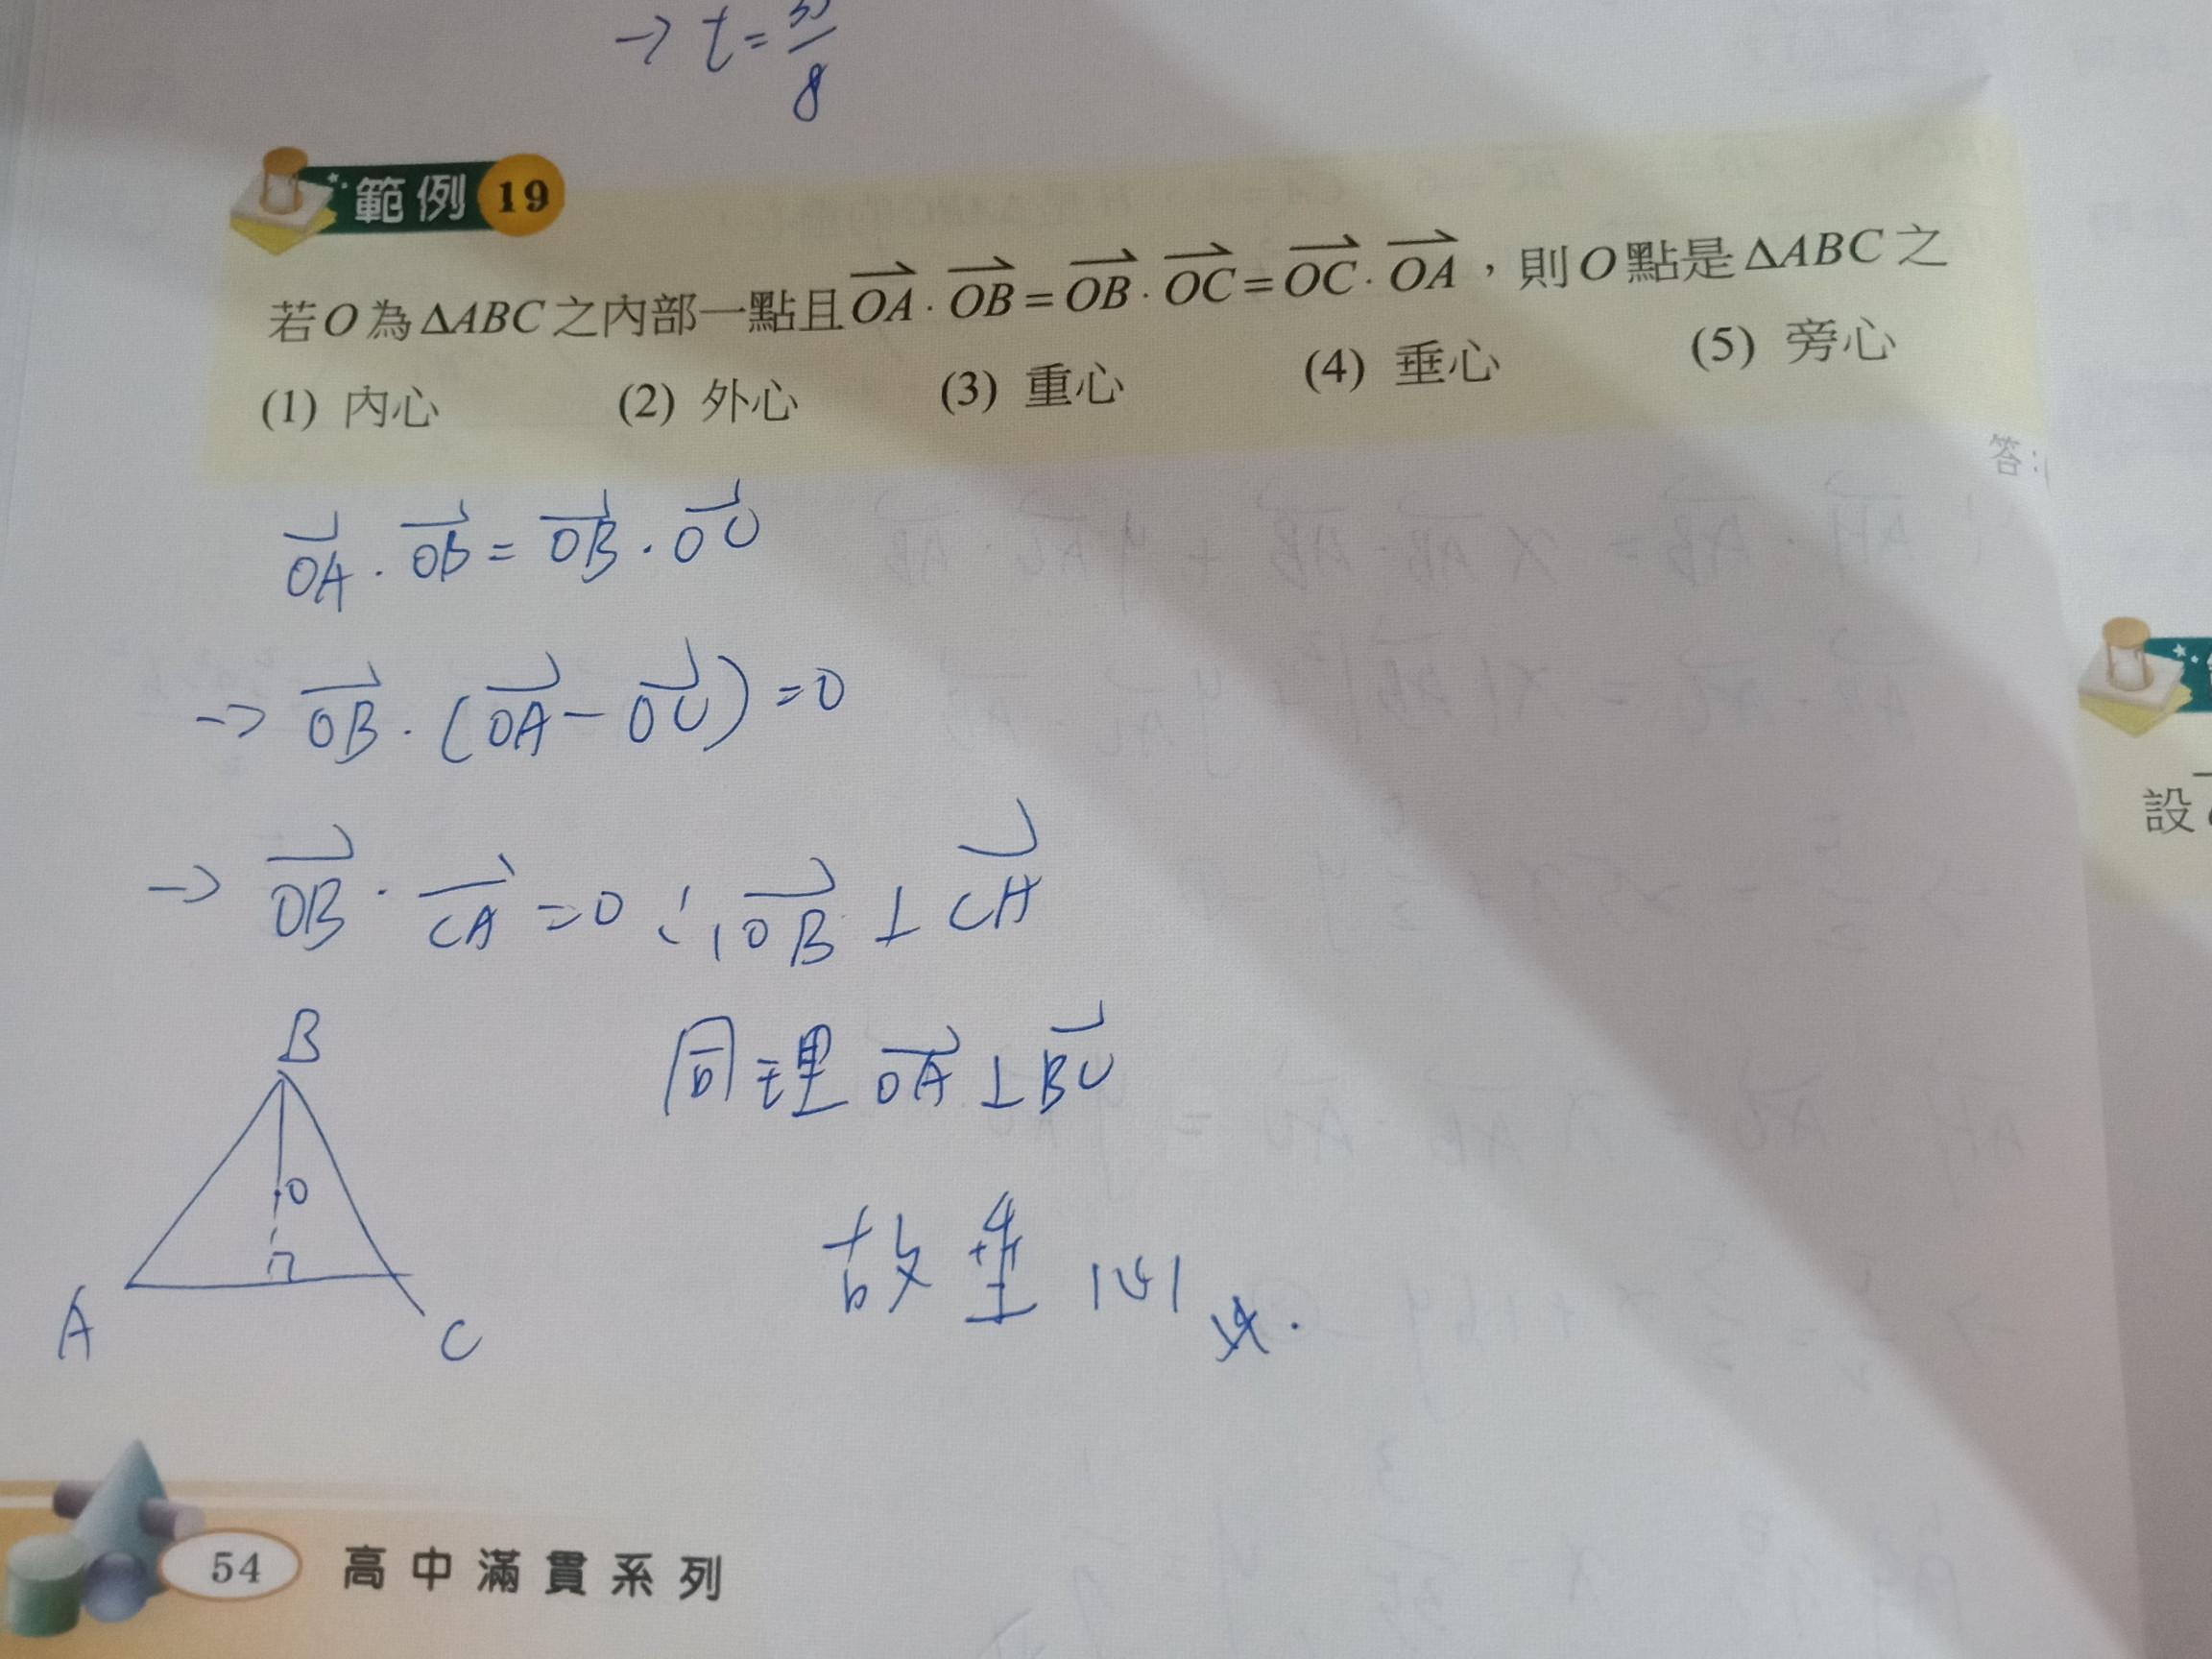 → t = /8
範例 19
若O為ΔABC之內部一點且OA⃗·OB⃗=OB⃗·OC⃗=OC⃗·OA⃗，則O點是ΔABC之
(1) 內心 (2) 外心 (3) 重心 (4) 垂心 (5) 旁心
答：
OA⃗·OB⃗=OB⃗·OC⃗
→ OB⃗·(OA⃗−OC⃗)=0
→ OB⃗·CA⃗=0 ∴ OB⃗⊥CA⃗
設
B
同理 OA⃗⊥BC⃗
O
故垂心
A
C
54 高中滿貫系列